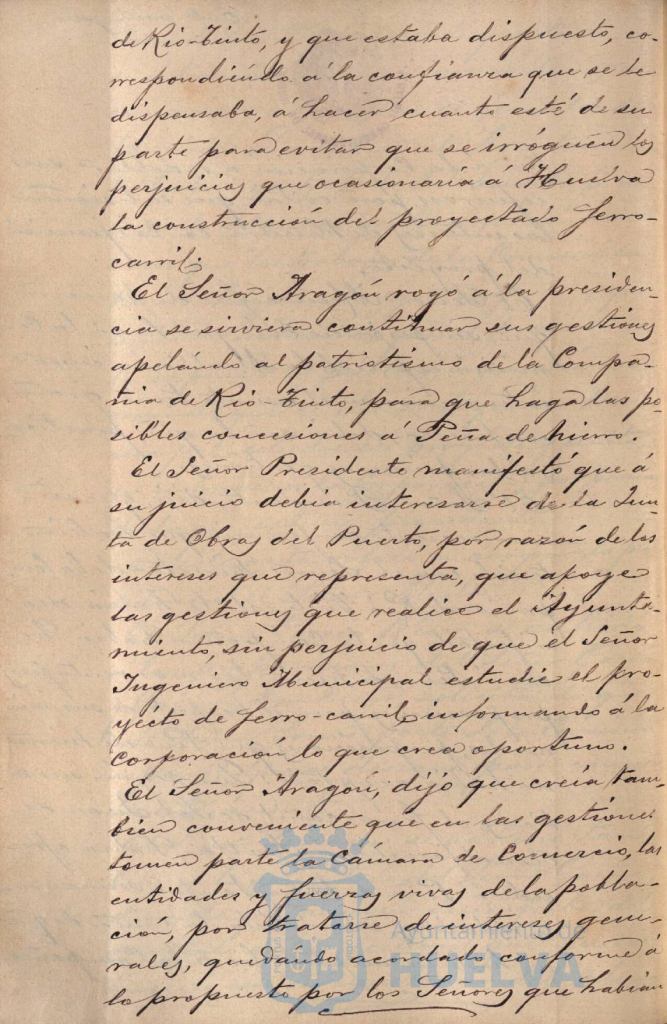 de Rio-Tinto, y que estaba dispuesto, co-
rrespondiéndo á la confianza que se le
dispensaba, á hacer cuanto esté de su
parte para evitar que se irróguen los
perjuicios que ocasionaria á Huelva
la construcción del proyectado ferro-
carril.
El Señor Aragón rogó á la presiden-
cia se sirviera continuar sus gestiones
apelándo al patriotismo de la Compa-
ñia de Rio-Tinto, para que haga las po-
sibles concesiones á Peña de hierro.
El Señor Presidente manifestó que á
su juicio debia interesarse de la Jun-
ta de Obras del Puerto, por razón de los
intereses que representa, que apoye
las gestiones que realice el Ayunta-
miento, sin perjuicio de que el Señor
Ingeniero Municipal estudie el pro-
yécto de ferro-carril, informando á la
corporación lo que crea oportuno.
El Señor Aragón, dijo que creía tam-
bien conveniente que en las gestiones
tomen parte la Cámara de Comercio, las
entidades y fuerzas vivas de la pobla-
ción, por tratarse de intereses gene-
rales, quedándo acordado conforme á
lo propuesto por los Señores que habían
Ayuntamiento de
HUELVA